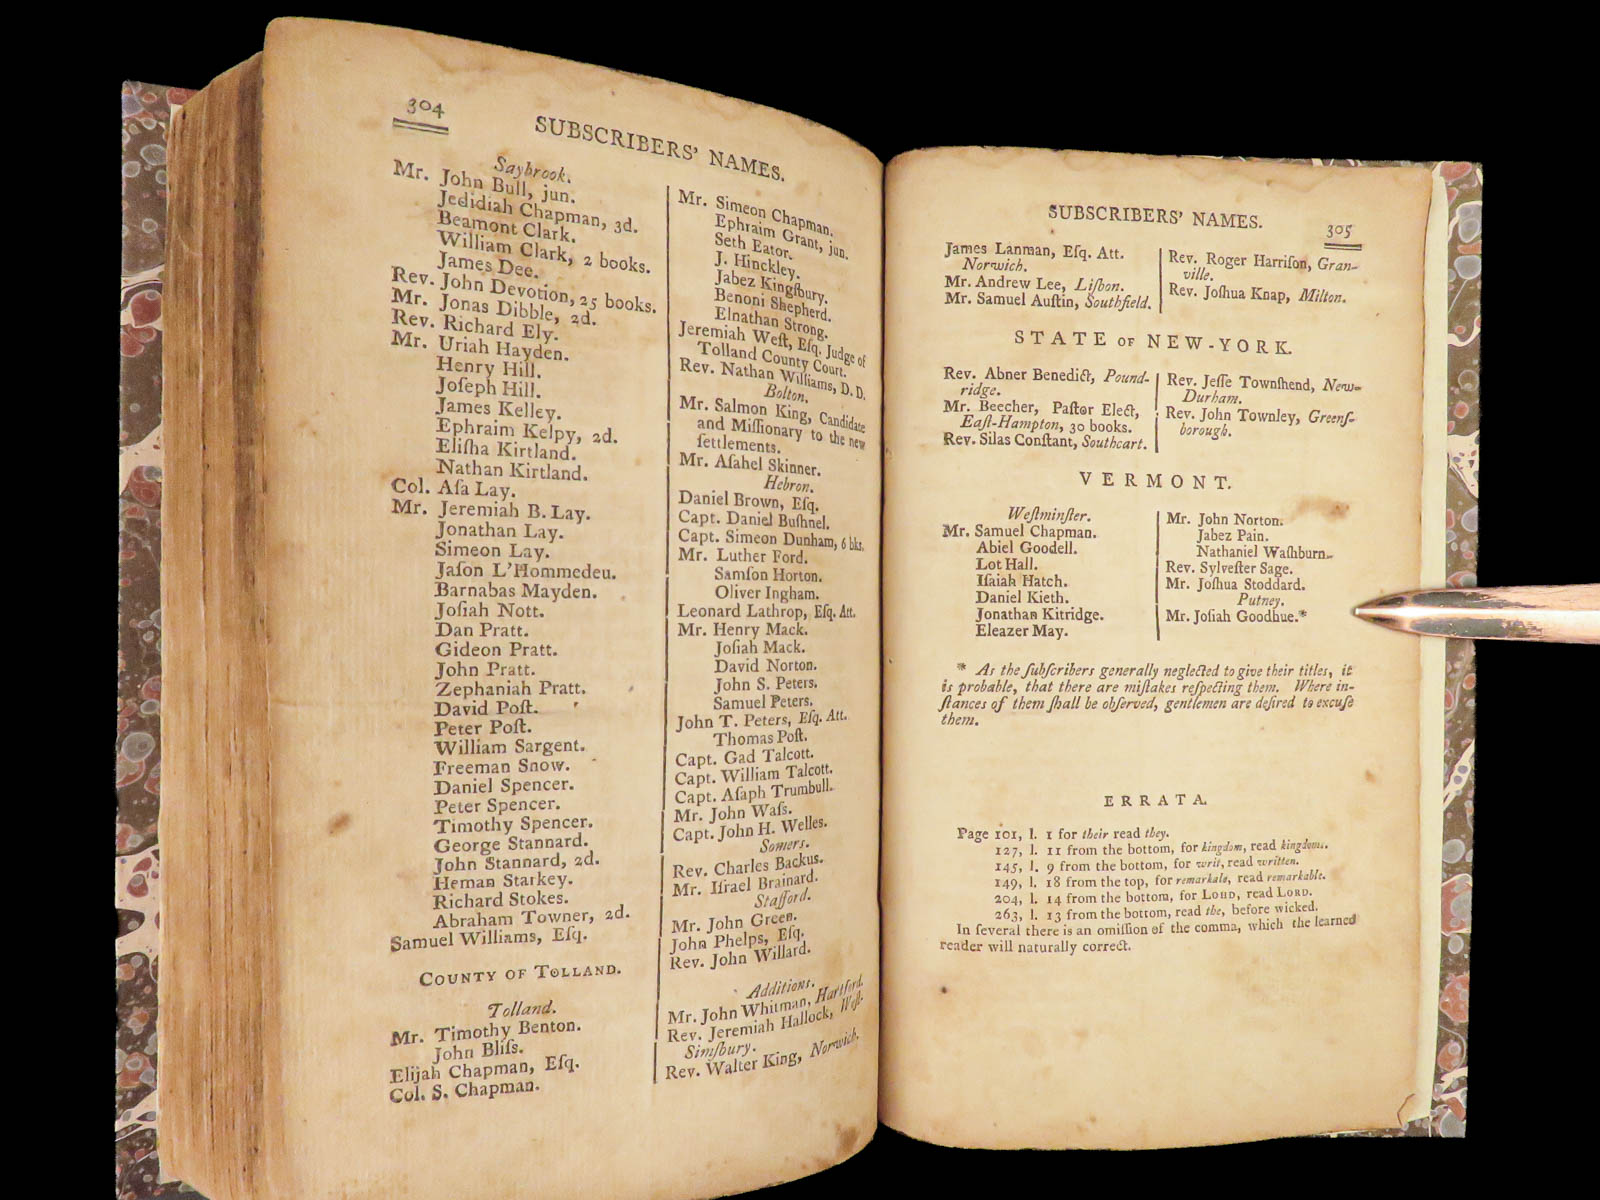 304
SUBSCRIBERS' NAMES.
Saybrook.
Mr. John Bull, jun.
Jedidiah Chapman, 3d.
Beamont Clark.
William Clark, 2 books.
James Dee.
Rev. John Devotion, 25 books.
Mr. Jonas Dibble, 2d.
Rev. Richard Ely.
Mr. Uriah Hayden.
Henry Hill.
Joſeph Hill.
James Kelley.
Ephraim Kelpy, 2d.
Eliſha Kirtland.
Nathan Kirtland.
Col. Aſa Lay.
Mr. Jeremiah B. Lay.
Jonathan Lay.
Simeon Lay.
Jaſon L'Hommedeu.
Barnabas Mayden.
Joſiah Nott.
Dan Pratt.
Gideon Pratt.
John Pratt.
Zephaniah Pratt.
David Poſt.
Peter Poſt.
William Sargent.
Freeman Snow.
Daniel Spencer.
Peter Spencer.
Timothy Spencer.
George Stannard.
John Stannard, 2d.
Heman Starkey.
Richard Stokes.
Abraham Towner, 2d.
Samuel Williams, Eſq.
COUNTY OF TOLLAND.
Tolland.
Mr. Timothy Benton.
John Bliſs.
Elijah Chapman, Eſq.
Col. S. Chapman.
Mr. Simeon Chapman.
Ephraim Grant, jun.
Seth Eator.
J. Hinckley.
Jabez Kingſbury.
Benoni Shepherd.
Elnathan Strong.
Jeremiah Weſt, Eſq. Judge of
Tolland County Court.
Rev. Nathan Williams, D. D.
Bolton.
Mr. Salmon King, Candidate
and Miſſionary to the new
ſettlements.
Mr. Aſahel Skinner.
Hebron.
Daniel Brown, Eſq.
Capt. Daniel Buſhnel.
Capt. Simeon Dunham, 6 bks.
Mr. Luther Ford.
Samſon Horton.
Oliver Ingham.
Leonard Lathrop, Eſq. Att.
Mr. Henry Mack.
Joſiah Mack.
David Norton.
John S. Peters.
Samuel Peters.
John T. Peters, Eſq. Att.
Thomas Poſt.
Capt. Gad Talcott.
Capt. William Talcott.
Capt. Aſaph Trumbull.
Mr. John Waſs.
Capt. John H. Welles.
Somers.
Rev. Charles Backus.
Mr. Iſrael Brainard.
Stafford.
Mr. John Green.
John Phelps, Eſq.
Rev. John Willard.
Additions.
Mr. John Whitman, Hartford.
Rev. Jeremiah Hallock, Weſt-
Simſbury.
Rev. Walter King, Norwich.
SUBSCRIBERS' NAMES.
305
James Lanman, Eſq. Att.
Norwich.
Mr. Andrew Lee, Liſbon.
Mr. Samuel Auſtin, Southfield.
Rev. Roger Harriſon, Gran-
ville.
Rev. Joſhua Knap, Milton.
STATE OF NEW-YORK.
Rev. Abner Benedict, Pound-
ridge.
Mr. Beecher, Paſtor Elect,
Eaſt-Hampton, 30 books.
Rev. Silas Conſtant, Southcart.
Rev. Jeſſe Townſhend, New-
Durham.
Rev. John Townley, Greenſ-
borough.
VERMONT.
Weſtminſter.
Mr. Samuel Chapman.
Abiel Goodell.
Lot Hall.
Iſaiah Hatch.
Daniel Kieth.
Jonathan Kitridge.
Eleazer May.
Mr. John Norton.
Jabez Pain.
Nathaniel Waſhburn.
Rev. Sylveſter Sage.
Mr. Joſhua Stoddard.
Putney.
Mr. Joſiah Goodhue.*
* As the ſubſcribers generally neglected to give their titles, it
is probable, that there are miſtakes reſpecting them. Where in-
ſtances of them ſhall be obſerved, gentlemen are deſired to excuſe
them.
ERRATA.
Page 101, l. 1 for their read they.
127, l. 11 from the bottom, for kingdom, read kingdoms.
145, l. 9 from the bottom, for writ, read written.
149, l. 18 from the top, for remarkale, read remarkable.
204, l. 14 from the bottom, for LOND, read LORD.
263, l. 13 from the bottom, read the, before wicked.
In ſeveral there is an omiſſion of the comma, which the learned
reader will naturally correct.